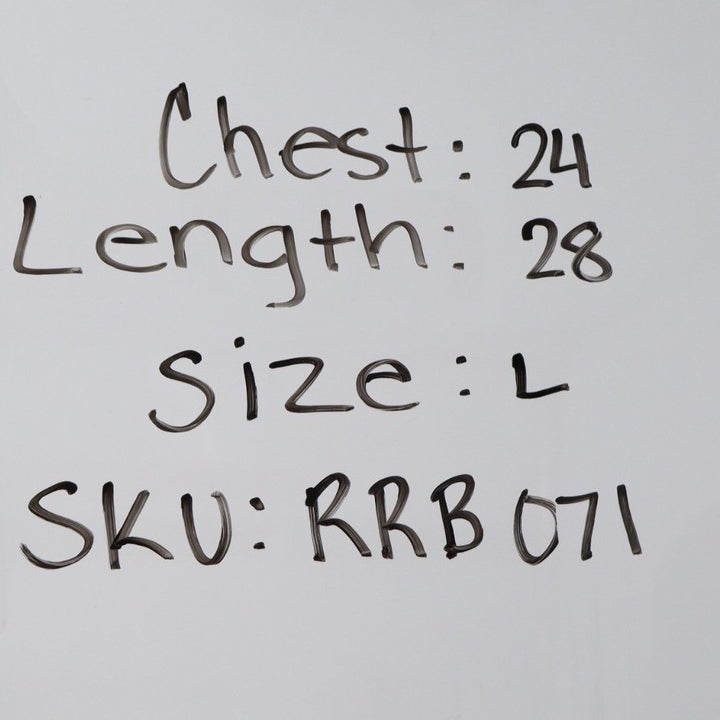 Chest: 24
Length: 28
Size: L
SKU: RRB071